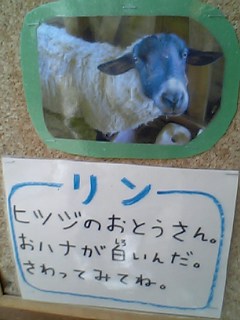 リン
ヒツジのおとうさん。
おハナが白いんだ。
さわってみてね。